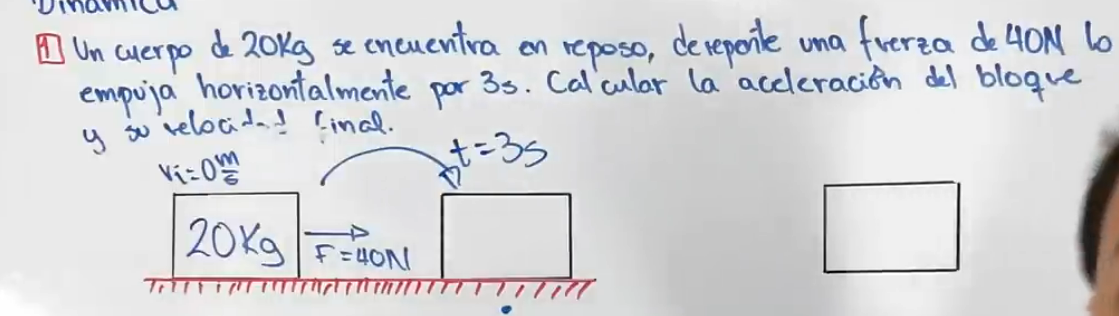 Dinámica
1 Un cuerpo de 20Kg se encuentra en reposo, de repente una fuerza de 40N lo
empuja horizontalmente por 3s. Calcular la aceleración del bloque
y su velocidad final.
Vi=0 m/s
t=3s
20Kg
F=40N